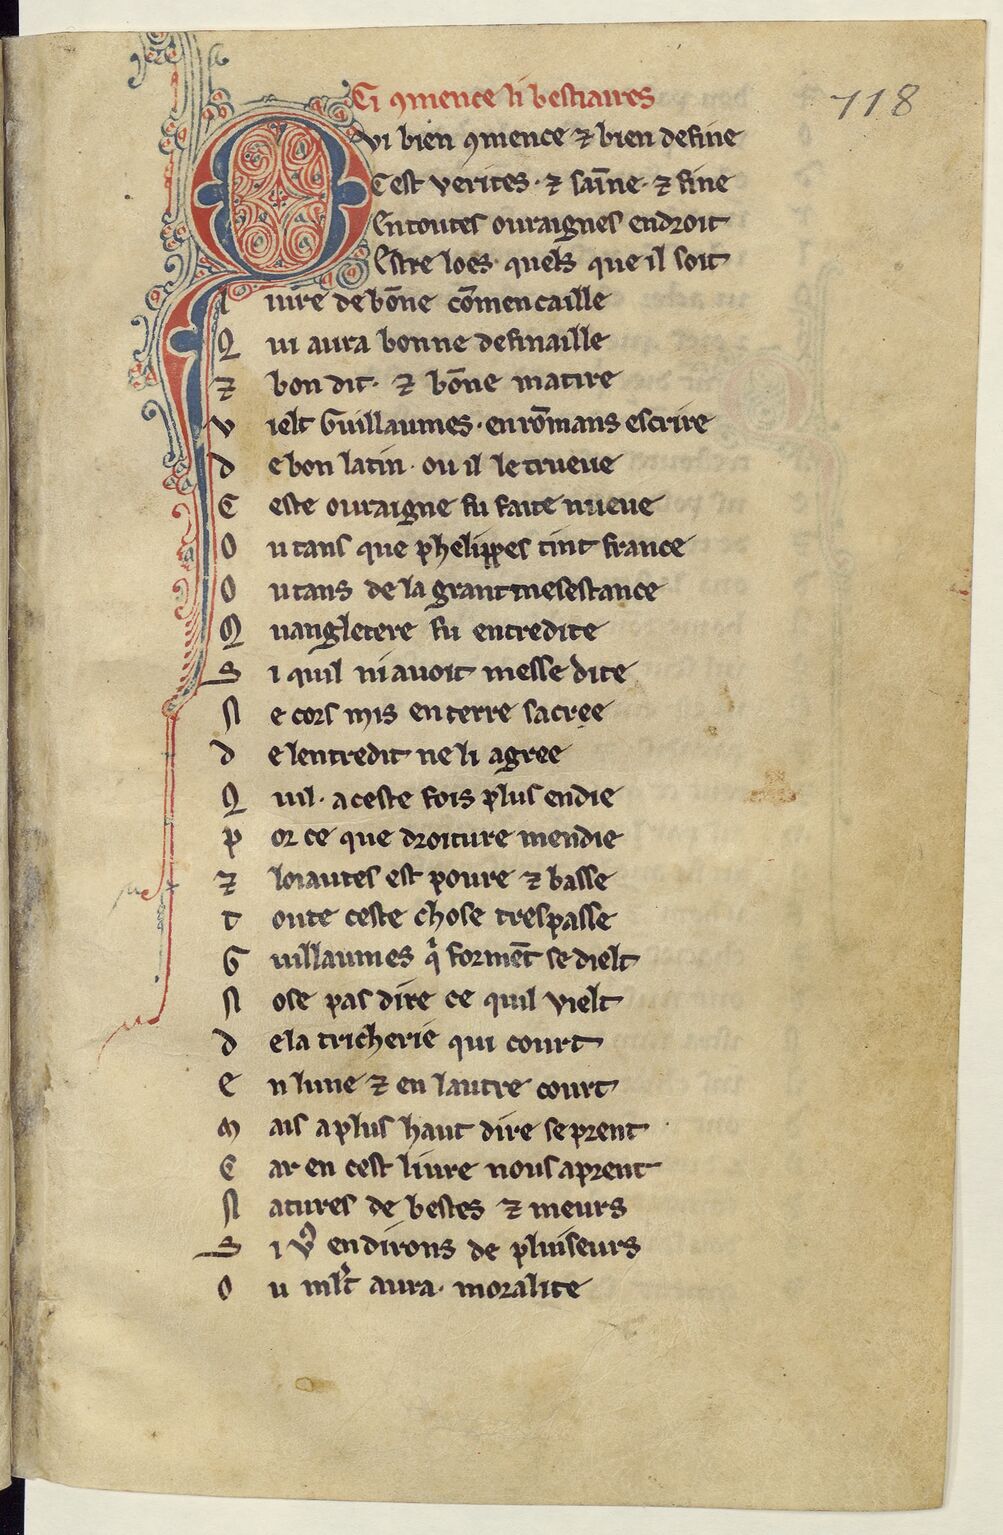 Ci ꝯmence li bestiaires
118
Qvi bien ꝯmence ⁊ bien define
C est verites · ⁊ saīne · ⁊ fine
En toutes ouraignes endroit
Estre loes · quels que il soit
L iure de bōne cōmencaille
Q ui aura bonne definaille
⁊ bon dit · ⁊ bōne matire
v ielt Guillaumes · en rōmans escrire
d e bon latin · ou il le trueue
C este ouraigne fu faite nueue
O u tans que phelippes tint france
O u tans de la grant mesestance
Q uangletere fu entredite
S i quil ni auoit messe dite
N e cors mis en terre sacree
d e lentredit ne li agree
Q uil · a ceste fois plus en die
p or ce que droiture mendie
⁊ loiautes est poure ⁊ basse
t oute ceste chose trespasse
G uillaumes qⁱ formēt se dielt
N ose pas dire ce quil vielt
d e la tricherie qui court
E n lune ⁊ en lautre court
M ais a plus haut dire se prent
C ar en cest liure nous aprent
N atures de bestes ⁊ meurs
S i vꝰ en dirons de pluiseurs
O u ml̃t aura · moralite